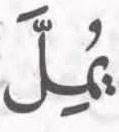 يُمِلَّ